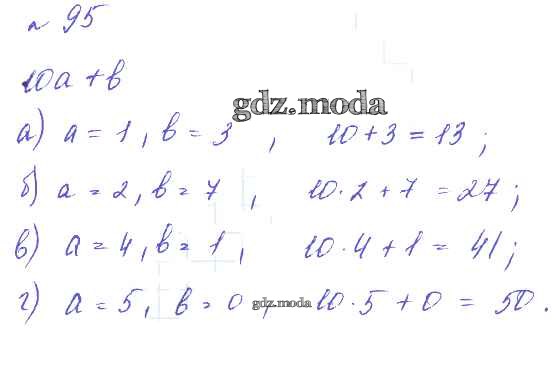 № 95
10a + b
gdz.moda
а) a = 1, b = 3, 10 + 3 = 13;
б) a = 2, b = 7, 10 · 2 + 7 = 27;
в) a = 4, b = 1, 10 · 4 + 1 = 41;
г) a = 5, b = 0, 10 · 5 + 0 = 50.
gdz.moda